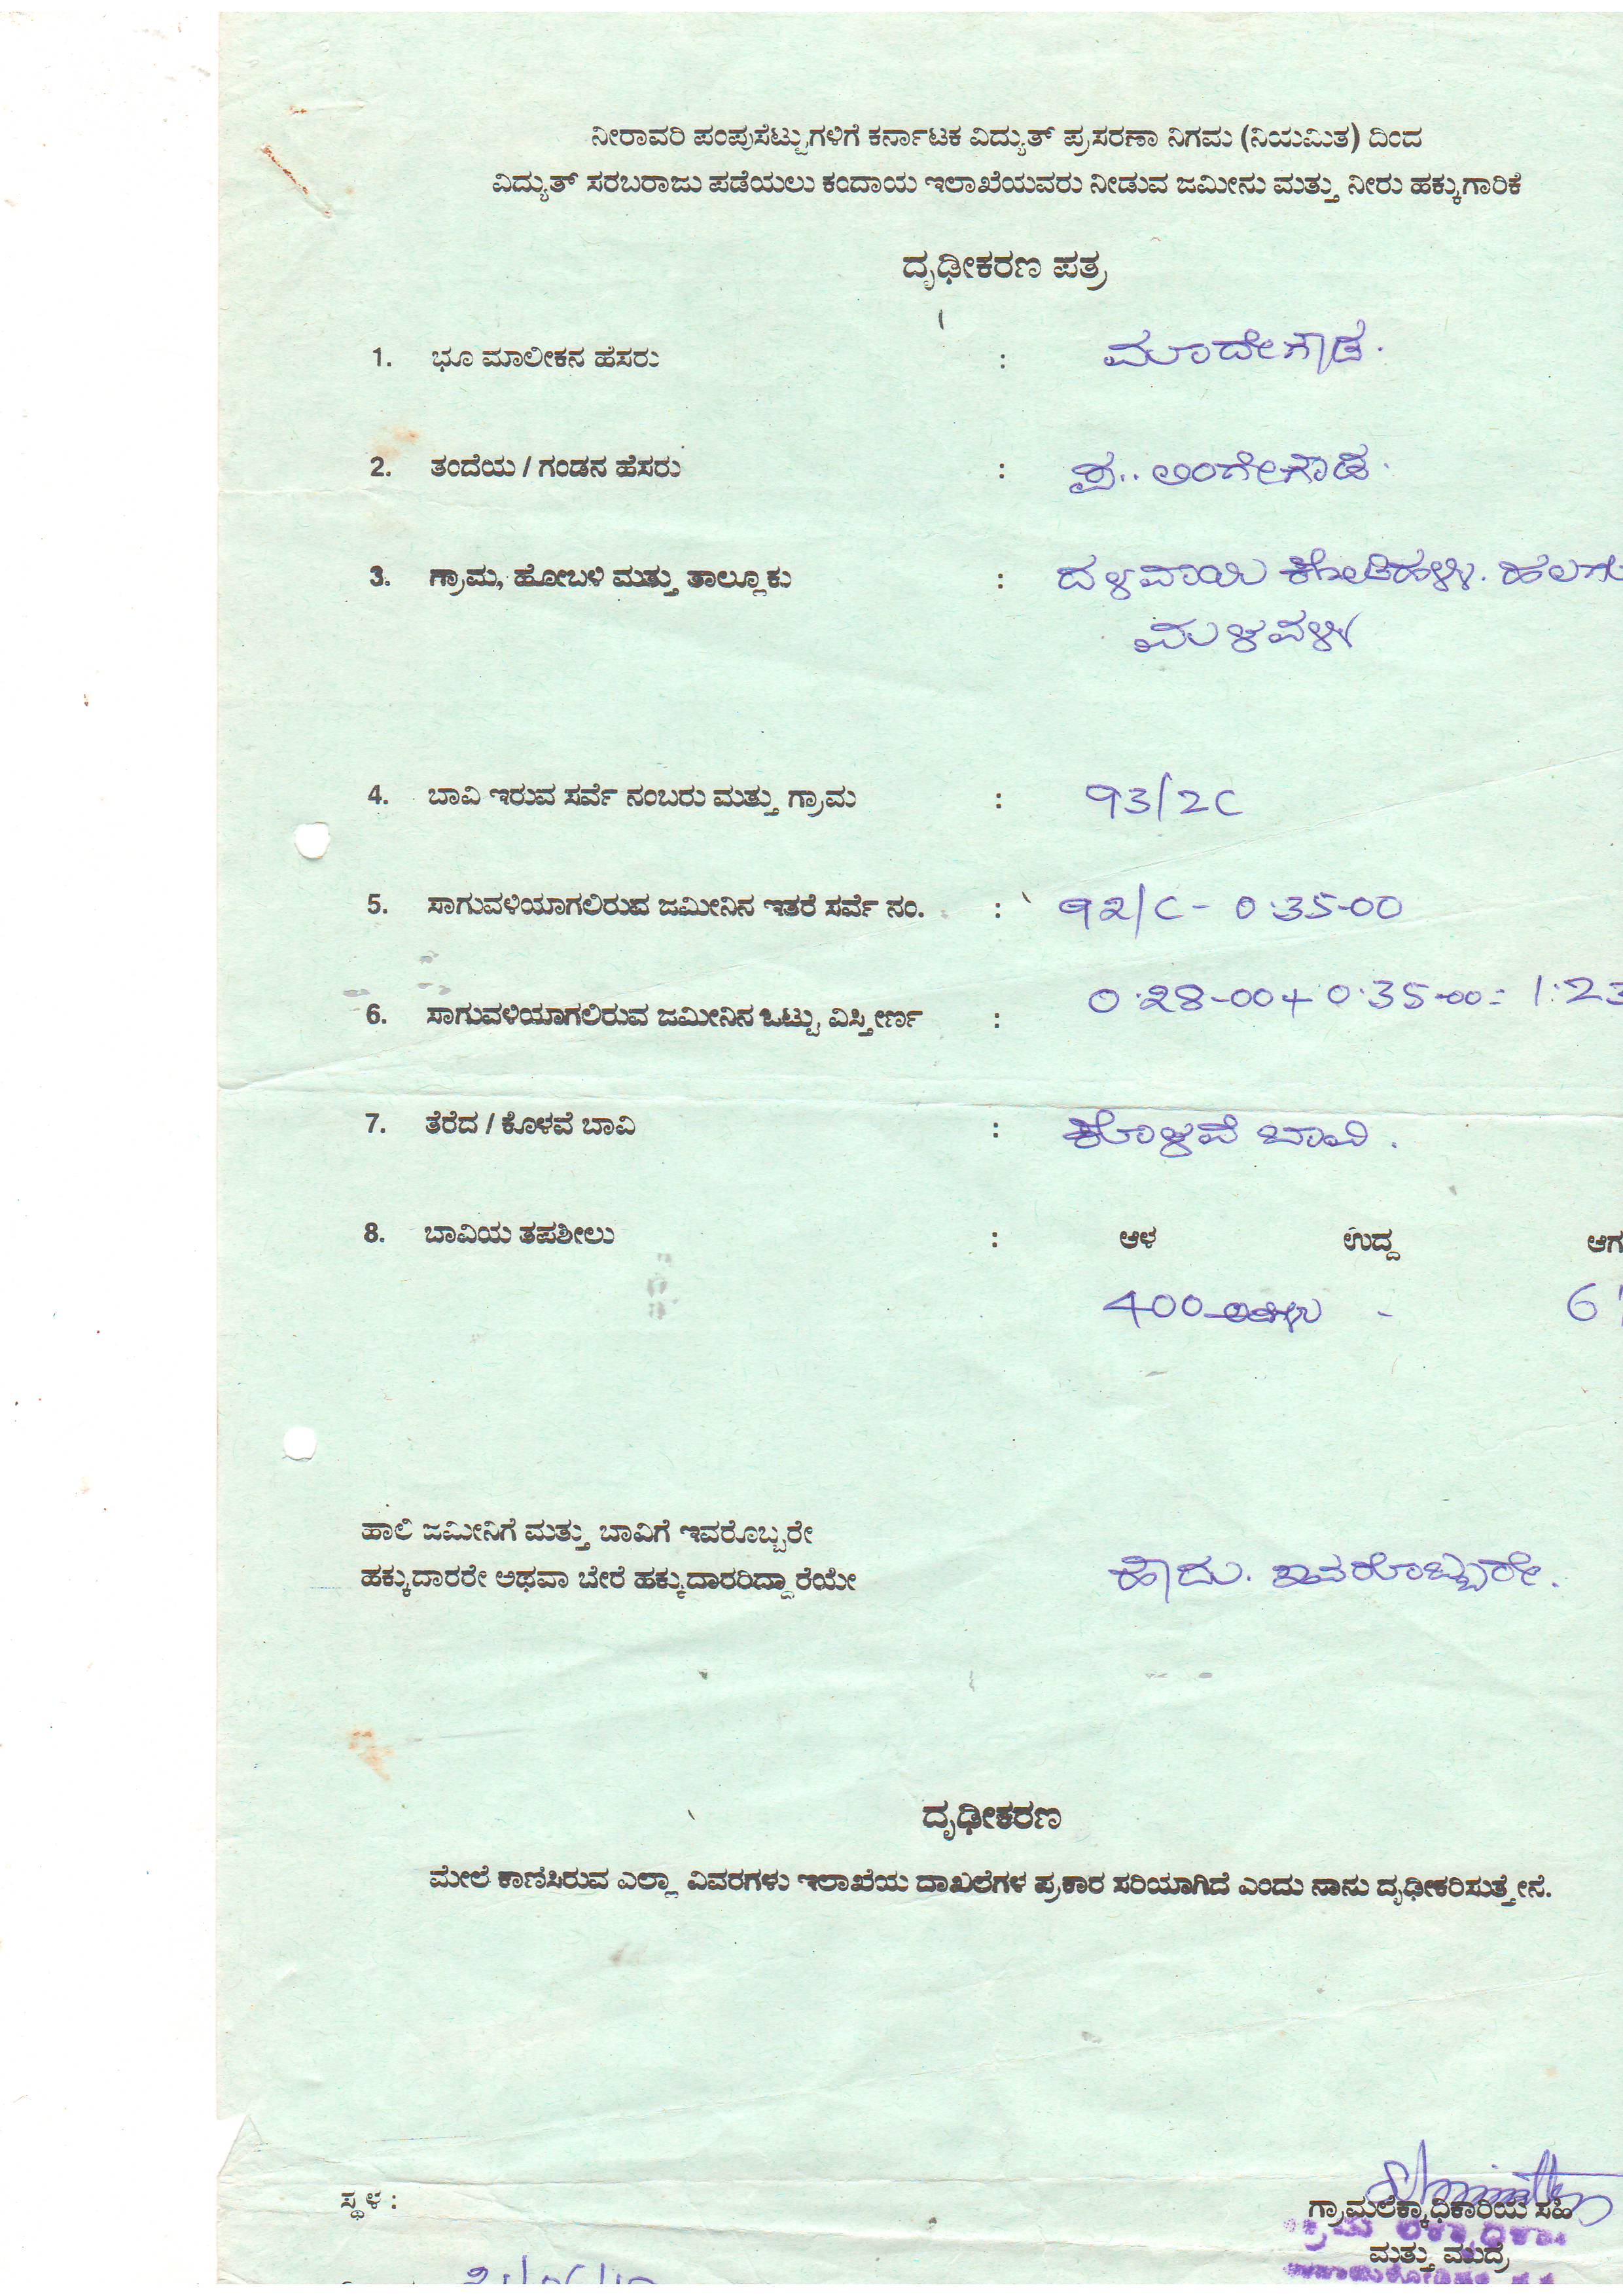 ನೀರಾವರಿ ಪಂಪುಸೆಟ್ಟುಗಳಿಗೆ ಕರ್ನಾಟಕ ವಿದ್ಯುತ್ ಪ್ರಸರಣಾ ನಿಗಮ (ನಿಯಮಿತ) ದಿಂದ
ವಿದ್ಯುತ್ ಸರಬರಾಜು ಪಡೆಯಲು ಕಂದಾಯ ಇಲಾಖೆಯವರು ನೀಡುವ ಜಮೀನು ಮತ್ತು ನೀರು ಹಕ್ಕುಗಾರಿಕೆ
ದೃಢೀಕರಣ ಪತ್ರ
1. ಭೂ ಮಾಲೀಕನ ಹೆಸರು : ಮಾದೇಗೌಡ.
2. ತಂದೆಯ / ಗಂಡನ ಹೆಸರು : ಲಿಂಗೇಗೌಡ.
3. ಗ್ರಾಮ, ಹೋಬಳಿ ಮತ್ತು ತಾಲ್ಲೂಕು : ದಳವಾಯಿ ಕೋಡಿಹಳ್ಳಿ. ಹಲಗೂ
ಮಳವಳ್ಳಿ
4. ಬಾವಿ ಇರುವ ಸರ್ವೆ ನಂಬರು ಮತ್ತು ಗ್ರಾಮ : 93/2C
5. ಸಾಗುವಳಿಯಾಗಲಿರುವ ಜಮೀನಿನ ಇತರೆ ಸರ್ವೆ ನಂ. : 92/C - 0.35-00
6. ಸಾಗುವಳಿಯಾಗಲಿರುವ ಜಮೀನಿನ ಒಟ್ಟು ವಿಸ್ತೀರ್ಣ : 0.28-00 + 0.35-00 = 1:23
7. ತೆರೆದ / ಕೊಳವೆ ಬಾವಿ : ಕೊಳವೆ ಬಾವಿ.
8. ಬಾವಿಯ ತಪಶೀಲು : ಆಳ ಉದ್ದ ಆಗ
400 ಅಡಿಗಳು - 6'
ಹಾಲಿ ಜಮೀನಿಗೆ ಮತ್ತು ಬಾವಿಗೆ ಇವರೊಬ್ಬರೇ
ಹಕ್ಕುದಾರರೇ ಅಥವಾ ಬೇರೆ ಹಕ್ಕುದಾರರಿದ್ದಾರೆಯೇ ಹೌದು. ಇವರೊಬ್ಬರೇ.
ದೃಢೀಕರಣ
ಮೇಲೆ ಕಾಣಿಸಿರುವ ಎಲ್ಲಾ ವಿವರಗಳು ಇಲಾಖೆಯ ದಾಖಲೆಗಳ ಪ್ರಕಾರ ಸರಿಯಾಗಿದೆ ಎಂದು ನಾನು ದೃಢೀಕರಿಸುತ್ತೇನೆ.
ಸ್ಥಳ :
ಗ್ರಾಮಲೆಕ್ಕಾಧಿಕಾರಿಯ ಸಹಿ
ಮತ್ತು ಮುದ್ರೆ